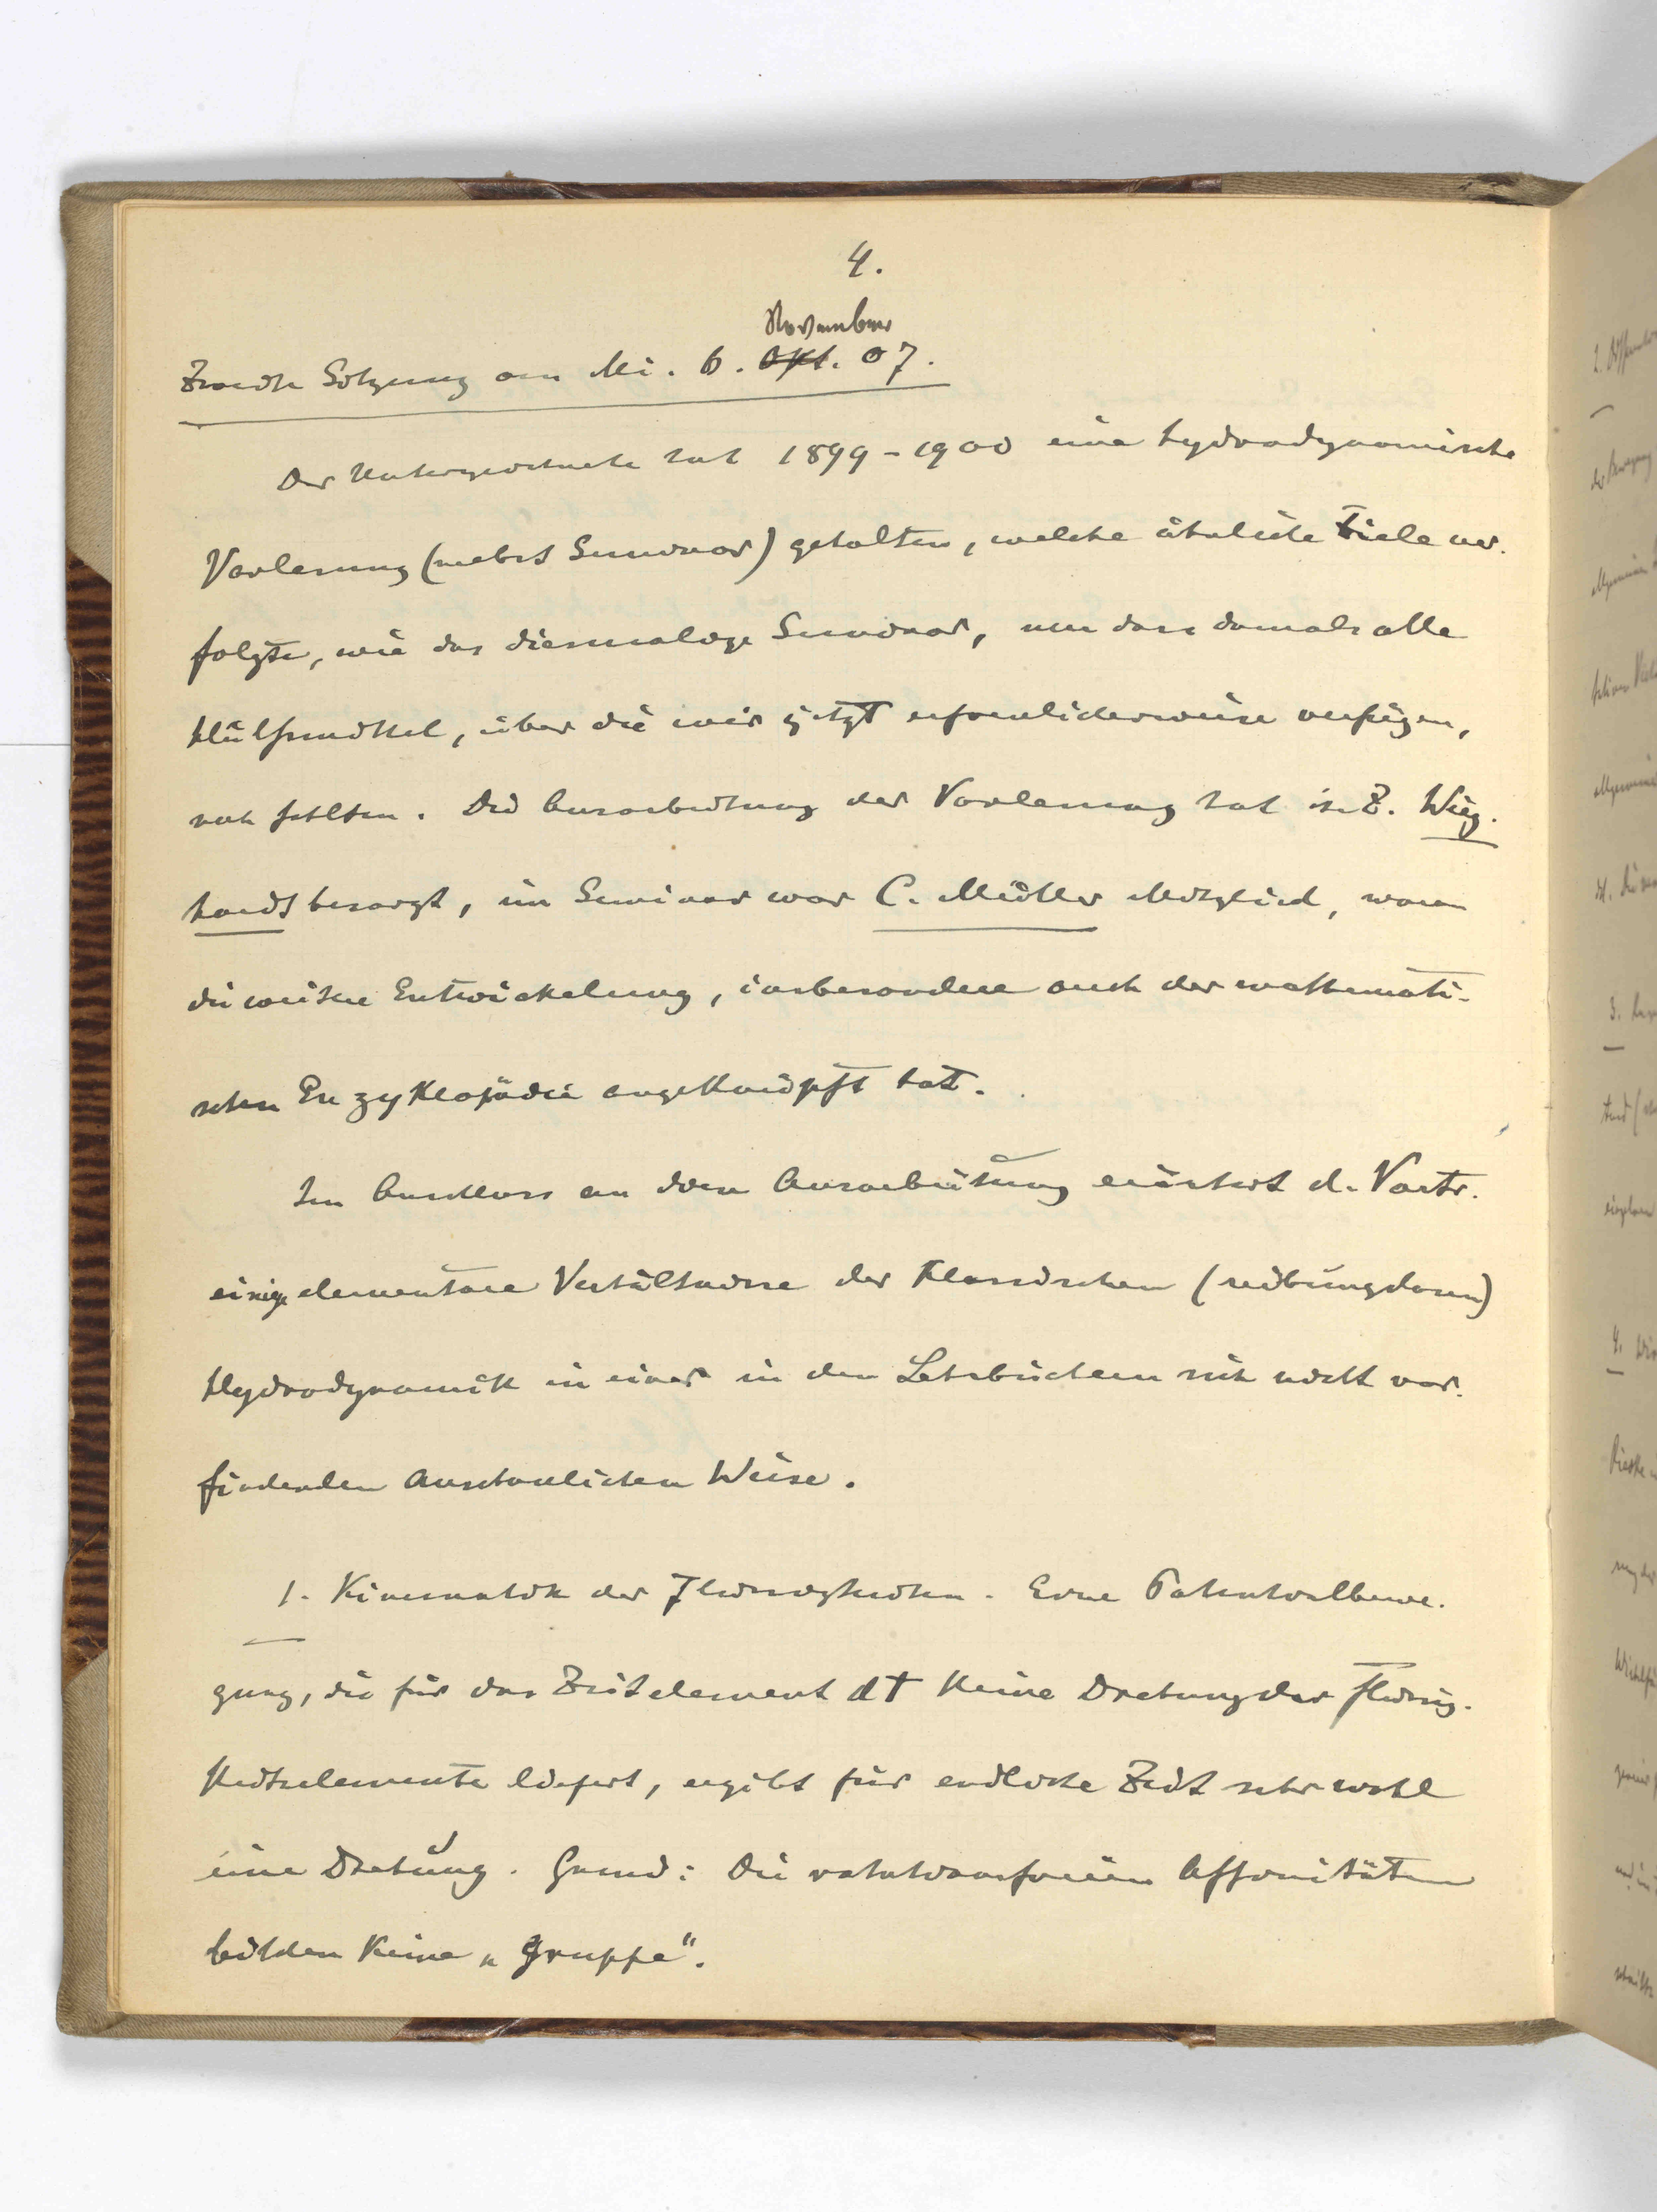 4.
November
Zweite Sitzung am Mi. 6. Okt. 07.
Der Unterzeichnete hat 1899-1900 eine hydrodynamische
Vorlesung (nebst Seminar) gehalten, welche ähnliche Ziele ver-
folgte, wie das diesmalige Seminar, nur dass damals alle
Hülfsmittel, über die wir jetzt erfreulicherweise verfügen,
noch fehlten. Die Ausarbeitung der Vorlesung hat s. Z. Wieg-
hardt besorgt, im Seminar war C. Müller Mitglied, woran
die weitere Entwickelung, insbesondere auch der mathemati-
schen Enzyklopädie angeknüpft hat.
Im Anschluss an diese Ausarbeitung erörtert d. Vortr.
einige elementare Verhältnisse der klassischen (reibungslosen)
Hydrodynamik in einer in den Lehrbüchern sich nicht vor-
findenden anschaulichen Weise.
1. Kinematik der Flüssigkeiten. Eine Potentialbewe-
gung, die für das Zeitelement dt keine Drehung der Flüssig-
keitselemente liefert, ergibt für endliche Zeit sehr wohl
eine Drehung. Grund: Die rotationsfreien Affinitäten
bilden keine „Gruppe".